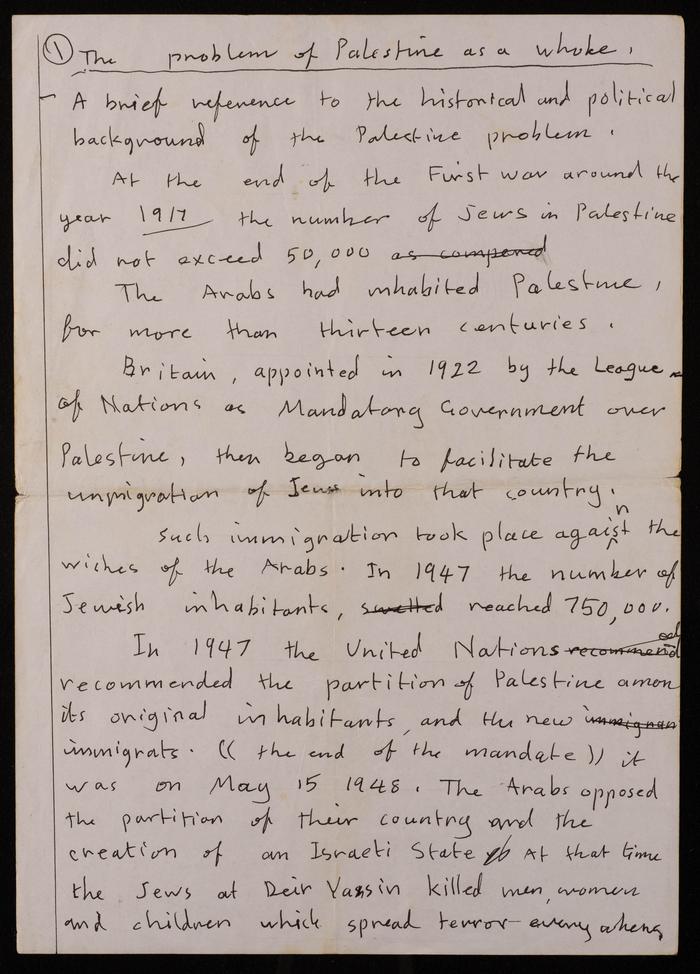 ① The problem of Palestine as a whole.
- A brief reference to the historical and political
background of the Palestine problem.
At the end of the First war around the
year 1917 the number of Jews in Palestine
did not exceed 50,000 as compered
The Arabs had inhabited Palestine,
for more than thirteen centuries.
Britain, appointed in 1922 by the League
of Nations as Mandatory Government over
Palestine, then began to facilitate the
immigration of Jews into that country.
such immigration took place against the
wiches of the Arabs. In 1947 the number of
Jewish inhabitants, swelled reached 750,000.
In 1947 the United Nations recommend
recommended the partition of Palestine amon
its original inhabitants, and the new immigran
immigrats. (( the end of the mandate )) it
was on May 15 1948. The Arabs opposed
the partition of their country and the
creation of an Israeli State At that time
the Jews at Deir Yassin killed men, women
and children which spread terror